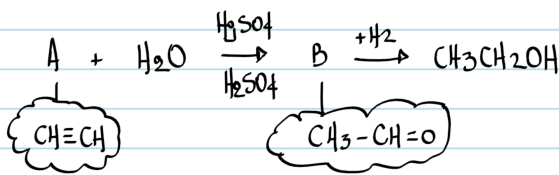 A + H2O HgSO4 H2SO4 B +H2 CH3CH2OH
CH≡CH CH3-CH=O